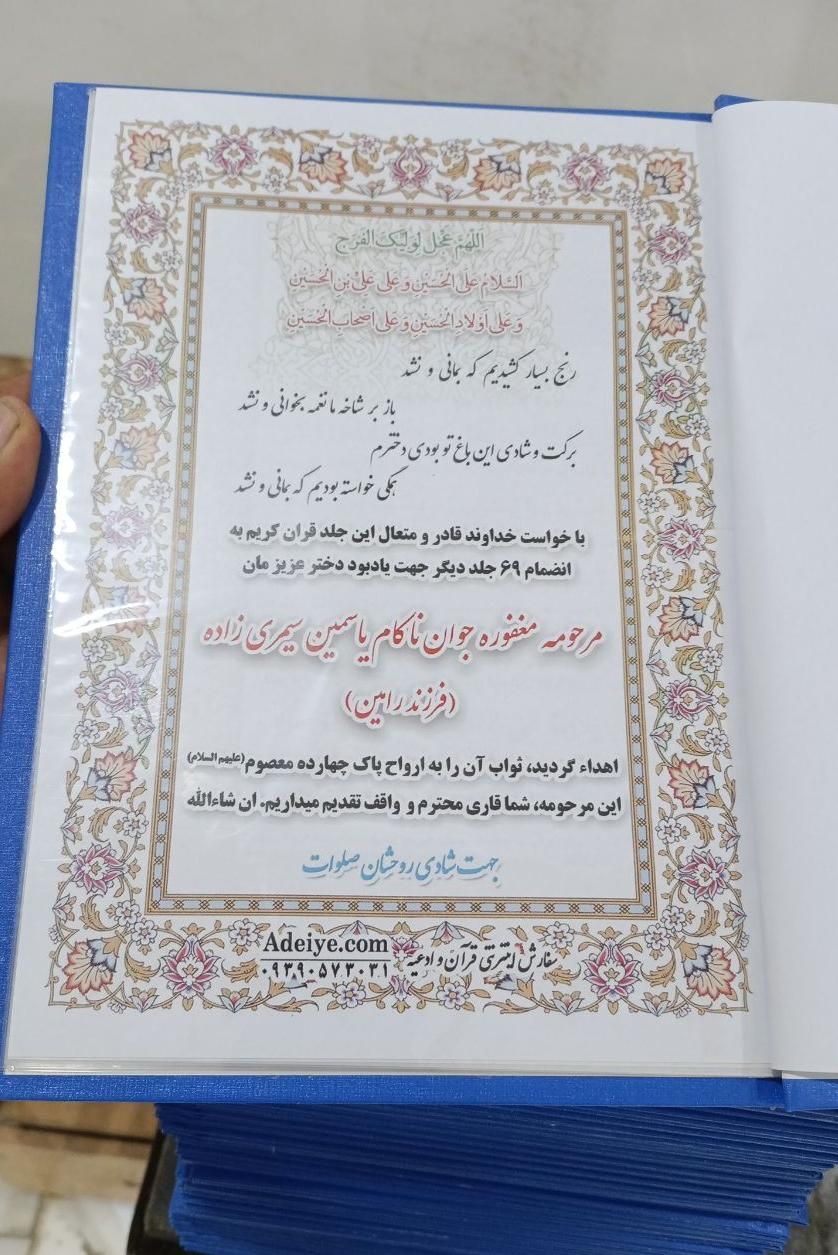 اَللّهُمَّ عَجِّل لِوَلیِّکَ الفَرَج
اَلسَّلامُ عَلَی الحُسَیْنِ وَ عَلی عَلیِّ بْنِ الحُسَیْنِ
وَ عَلی اَوْلادِ الحُسَیْنِ وَ عَلی اَصْحابِ الحُسَیْنِ
رنج بسیار کشیدیم که بمانی و نشد
باز بر شاخه ما نغمه بخوانی و نشد
برکت و شادی این باغ تو بودی دخترم
همگی خواسته بودیم که بمانی و نشد
با خواست خداوند قادر و متعال این جلد قران کریم به
انضمام ۶۹ جلد دیگر جهت یادبود دختر عزیز مان
مرحومه مغفوره جوان ناکام یاسمین سیمری زاده
(فرزند رامین)
اهداء گردید، ثواب آن را به ارواح پاک چهارده معصوم(علیهم السلام)
این مرحومه، شما قاری محترم و واقف تقدیم میداریم. ان شاءالله
جهت شادی روحشان صلوات
سفارش اینترنتی قرآن و ادعیه
Adeiye.com
۰۹۳۹۰۵۷۳۰۳۱